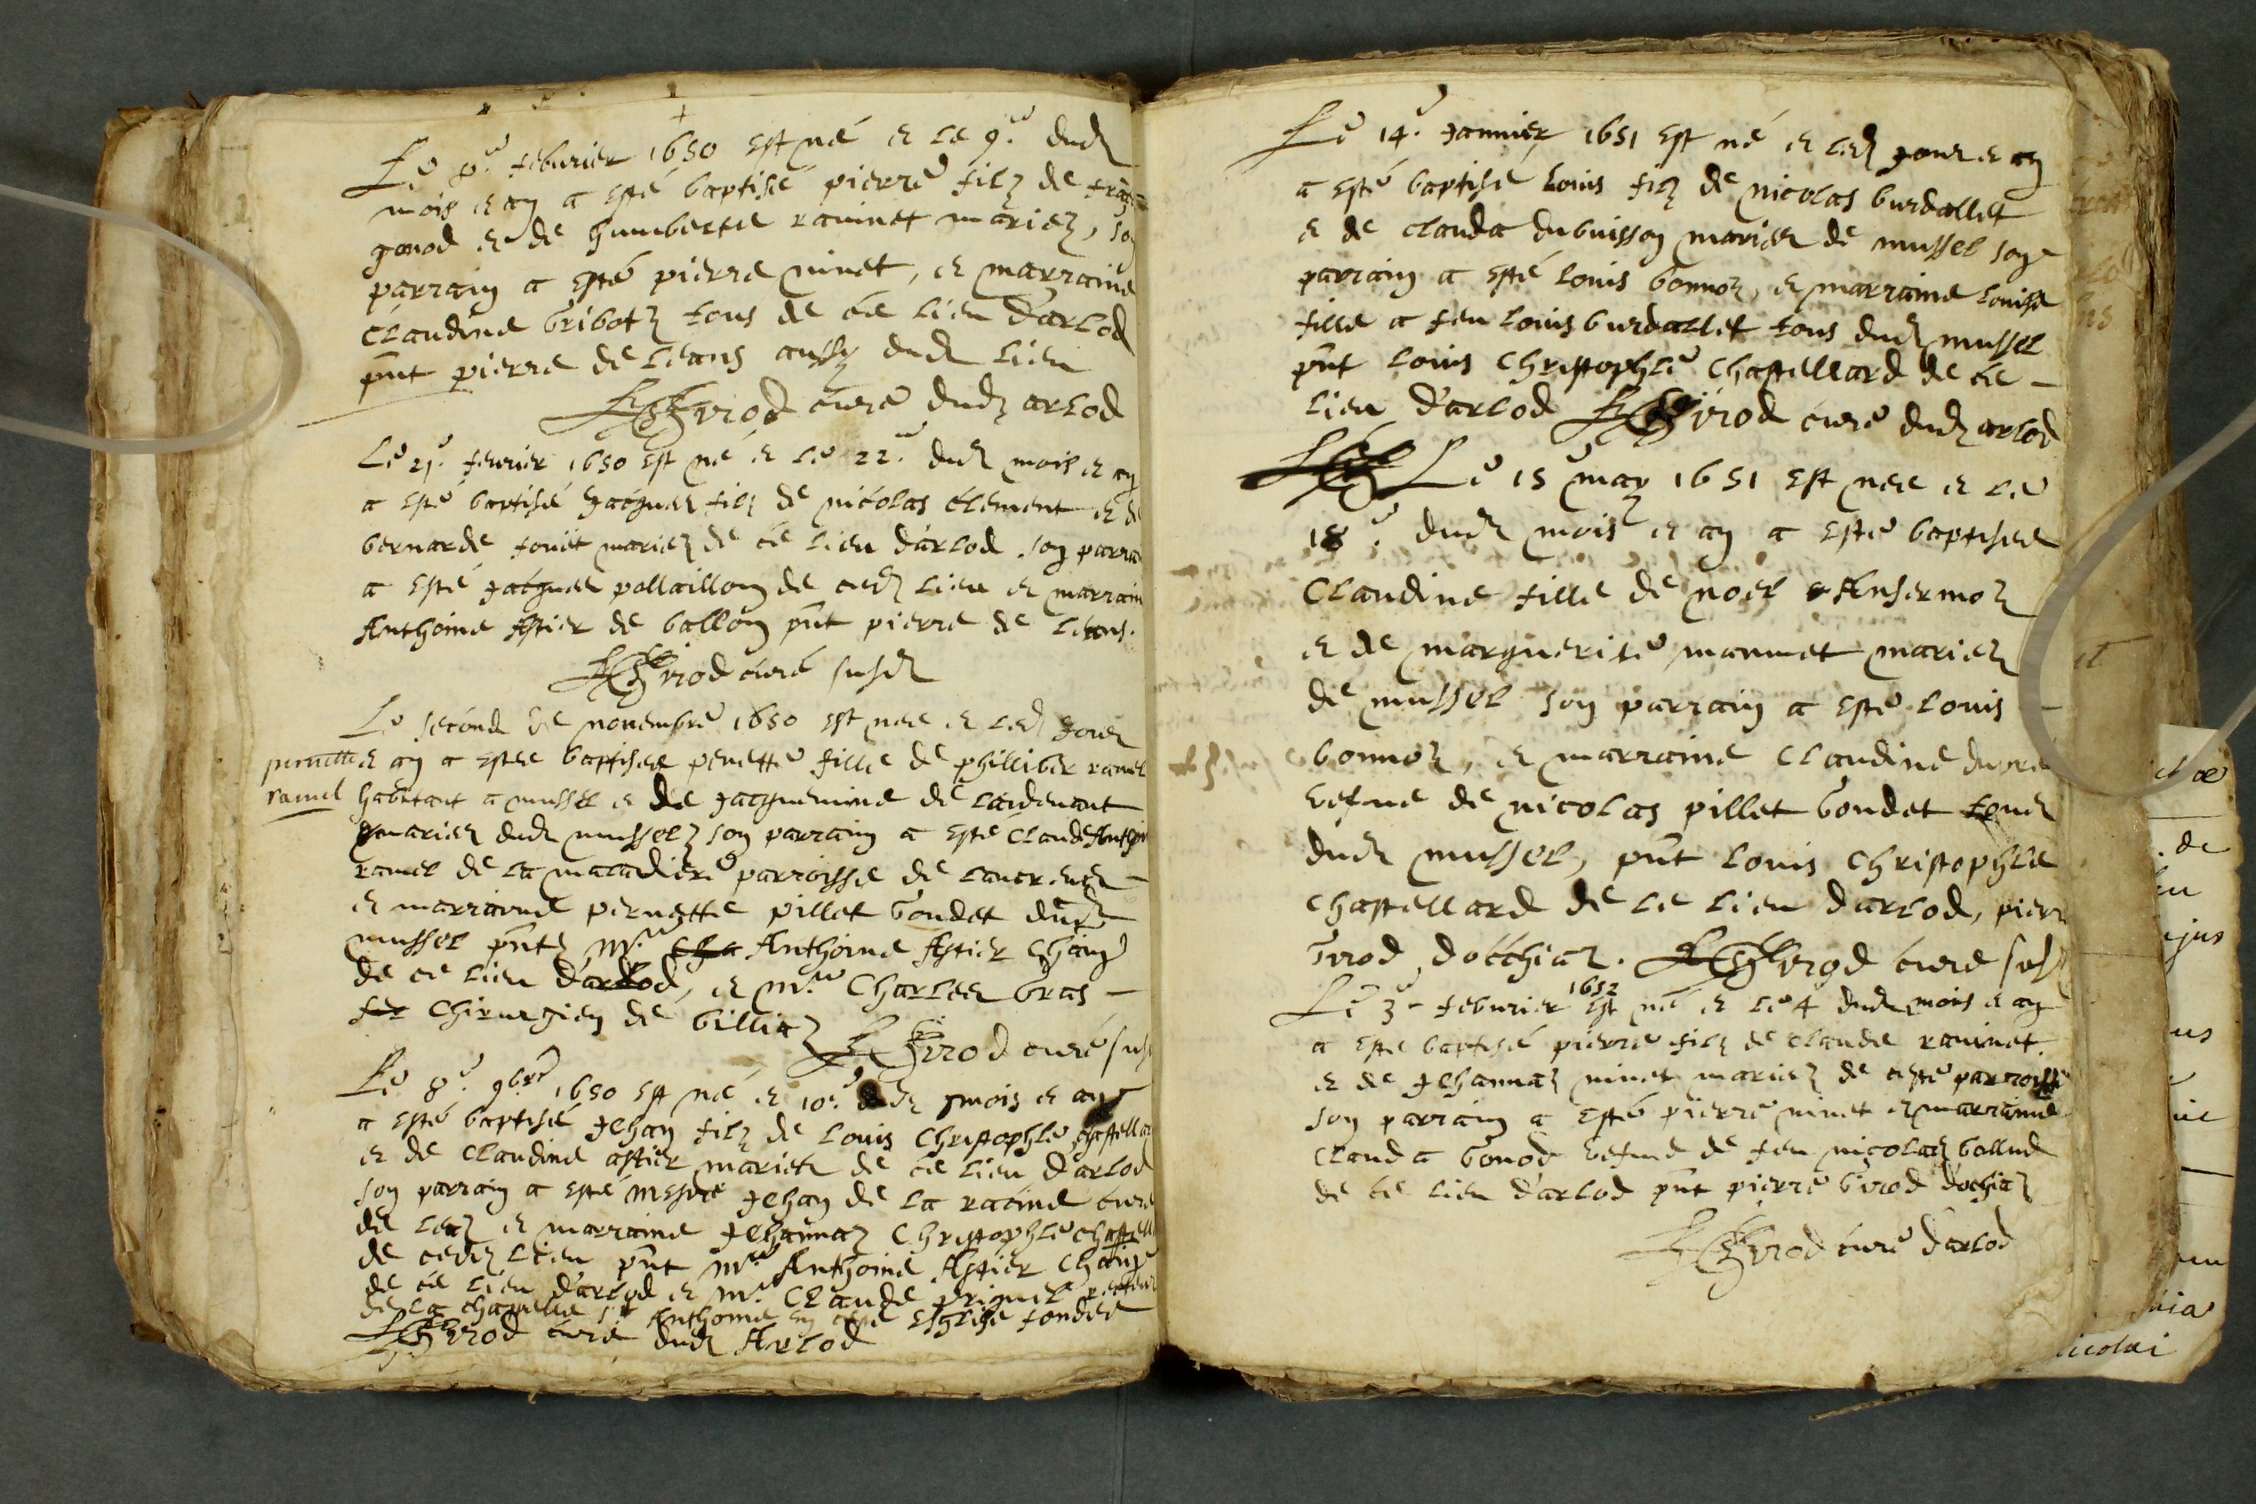 Le 8e. feburier 1650 est né et le 9e. dud
mois et an a esté baptisé pierre filz de
gonod et de humberte rauinet mariez, son
parrain a esté pierre ninet, et marraine
Claudine bribotz tous de ce lieu d'arlod
pnt pierre de leans aussy dud lieu
Girod curé dudz arlod
Le 21e. feurier 1650 est né et le 22e. dud mois et an
a esté baptisé Jacques filz de nicolas clement et de
bernarde fouët mariez de ce lieu darlod. son parrain
a esté Jacques pollaillon de cedz lieu et marraine
Anthoine Astier de ballon pnt pierre de leans.
Girod curé susd
Le second de nouembre 1650 est nee et led jour
pernette et an a estee baptisee pernette fille de philliber ramel
ramel habitant a mussel et de Jacquemine de lardenant
mariez dud mussel son parrain a esté Claude Anthoine
ramel de la maladiere parroisse de
et marraine pernette pillet goudet dud
mussel pntz Mre. Anthoine Astier
de ce lieu d'arlod, et Mre. Charles bras
chirurgien de billia
Girod curé susd
Le 8e. 9bre 1650 est né et 10e. dud mois et an
a esté baptisé Jehan filz de Louis Christophle chastellard
et de Claudine astier mariez de ce lieu d'arlod
son parrain a esté messire Jehan de la racine curé
de leaz et marraine Jehannaz Christophle chastell
de cedz lieu pnt Mre Anthoine Astier
de ce lieu d'arlod et Mre. Claude recteur
de la chapelle st Anthoine en ceste Esglise fondee
Girod curé dud Arlod
Le 14e. Januier 1651 est né et led jour et an
a esté baptisé Louis filz de nicolas burdallet
et de clauda dubuisson mariez de mussel son
parrain a esté Louis bonnoz, et marraine louise
fille a feu louis burdallet tous dud mussel
pnt Louis Christophle Chastellard de ce
lieu d'arlod Girod curé dudz arlod
Le 15 may 1651 est nee et le
18e dud mois et an a este baptisee
Claudine fille de noel Ansermoz
et de marguerite marmet mariez
de mussel son parrain a este Louis
bonnoz, et marraine Claudine
vefue de nicolas pillet goudet tous
dud mussel, pnt Louis Christophle
Chastellard de ce lieu d'arlod, pierre
Girod docchiaz. Girod curé susd
1652
Le 3e feburier est né et le 4 dud mois et an
a esté baptisé pierre filz de claude rauinet
et de Jehannaz ninet mariez de ceste parroisse
son parrain a esté pierre ninet et marraine
Clauda gonod vefue de feu nicolas ballud
de ce lieu d'arlod pnt pierre Girod dochiaz
Girod curé darlod